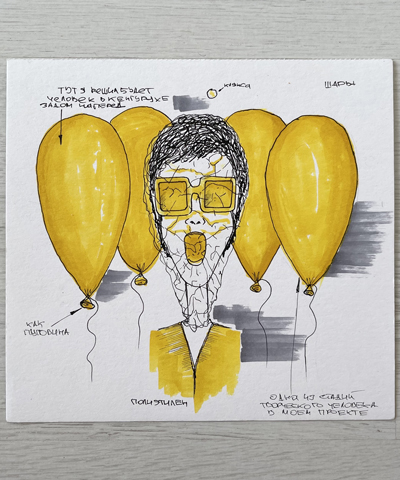 ТУТ Я РЕШИЛ БУДЕТ
ЧЕЛОВЕК В КЕНГУРУХЕ
ЗАДОМ НАПЕРЕД
КЛЯКСА
ШАРЫ
КАК
ПУПОВИНА
ПОЛИЭТИЛЕН
ОДНА ИЗ СТАДИЙ
ТВОРЧЕСКОГО ЧЕЛОВЕКА
В МОЕМ ПРОЕКТЕ